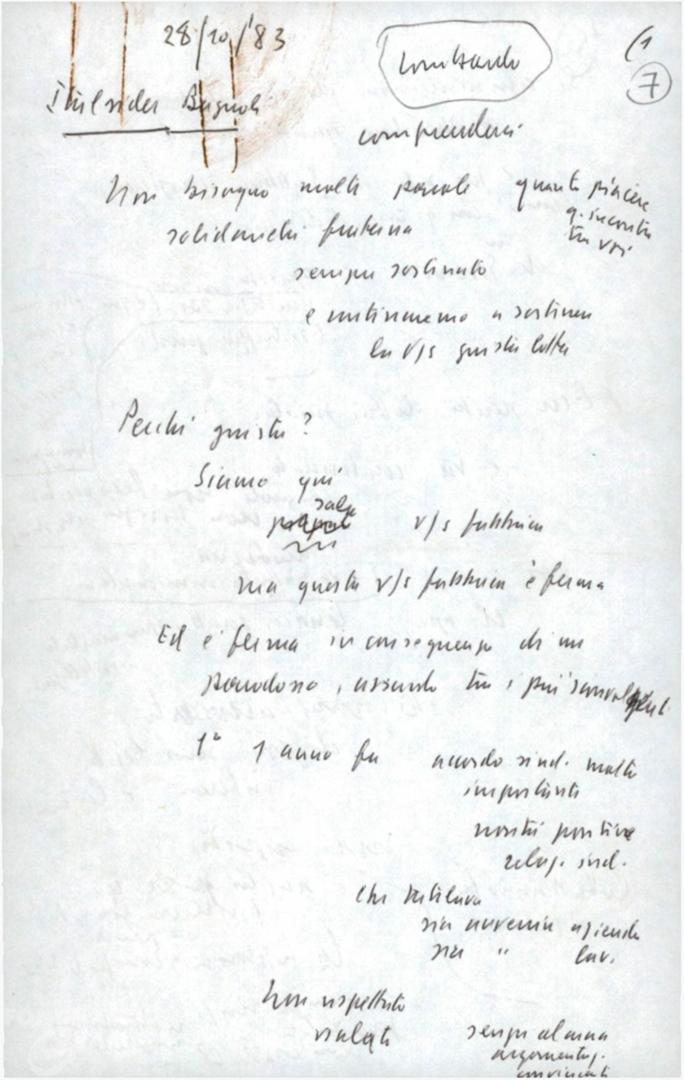 28/10/'83
(1
7
Lombardo
Italsider Bagnoli
comprenderà
Non bisogno molte parole quanto piacere
q. incontro
tra voi
solidarietà fraterna
sempre sostinato
e continueremo a sostinere
la v/s giusta lotta
Perché giusta?
Siamo qui
sala
v/s fabbrica
ma questa v/s fabbrica è ferma
Ed è ferma in conseguenza di un
paradosso, assurdo tra i più
1° 1 anno fa accordo sind. molto
importante
novità positive
relaz. ind.
che tutelava
sia avvenire azienda
sia " lav.
Non rispettato
violati senza alcuna
argomentaz.
convincente